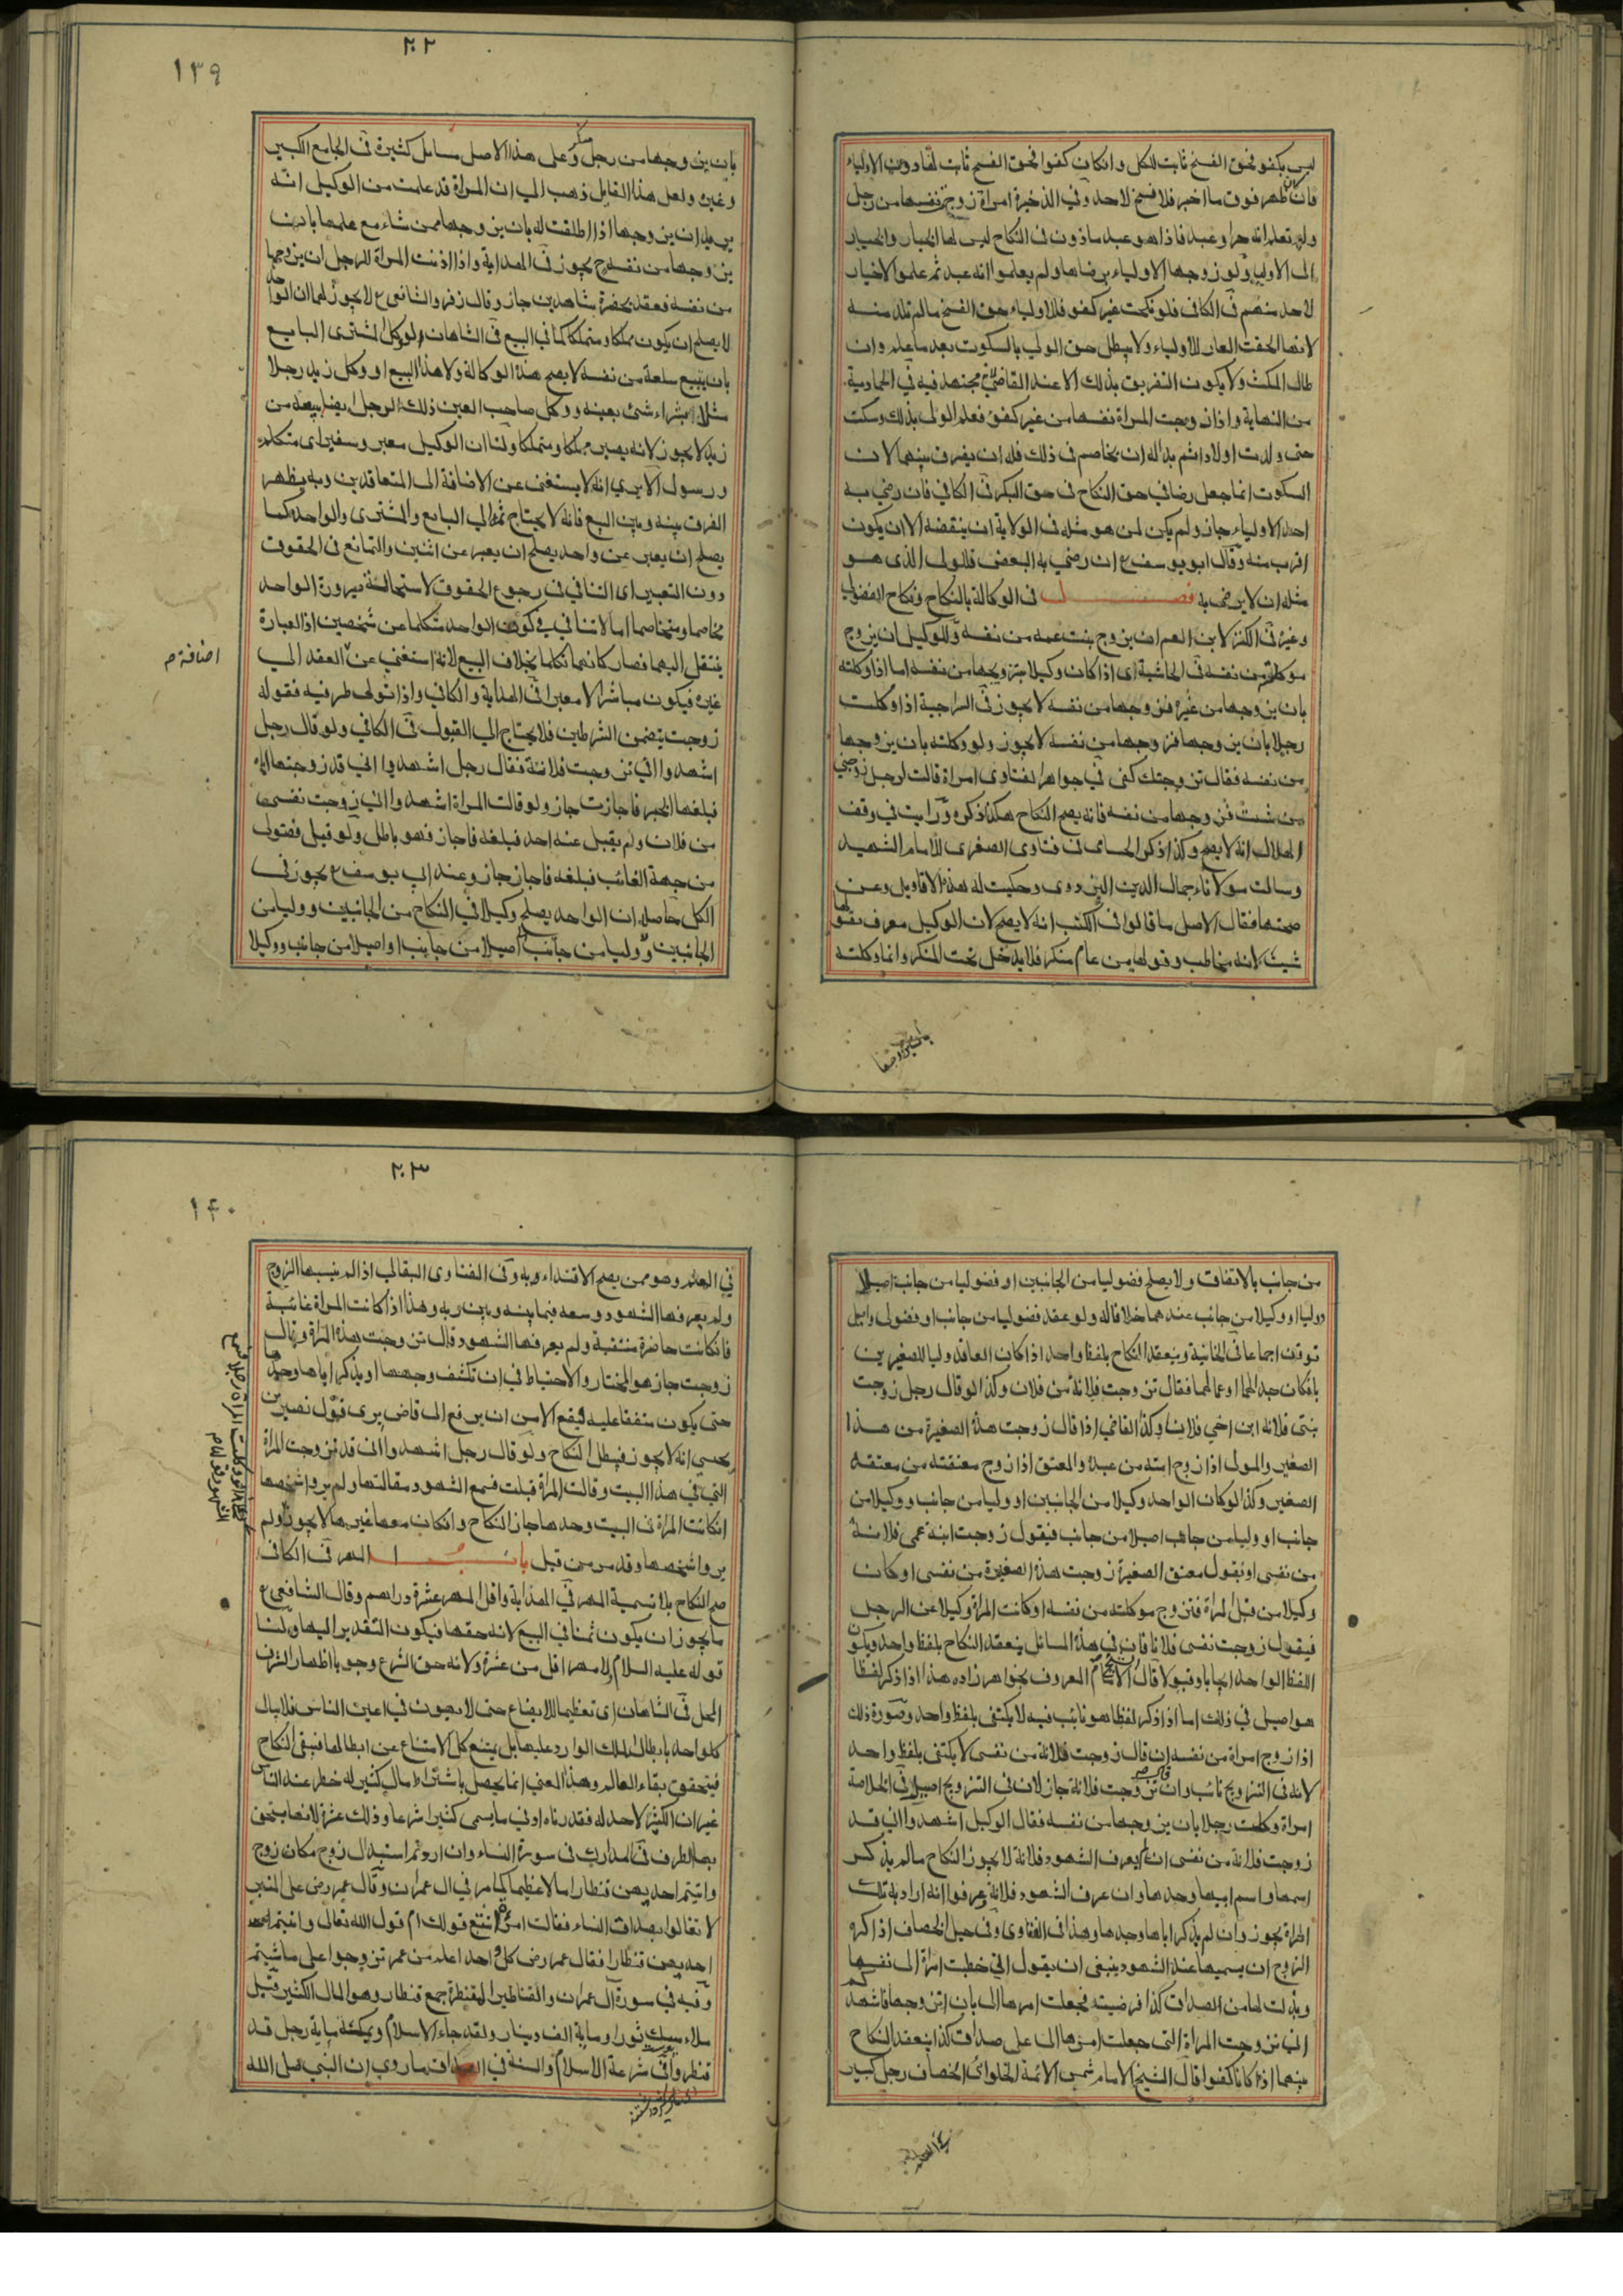 ليس بكفو فحق الفسخ ثابت للكل وانكان كفوا فحق الفسخ ثابت لها دون الاولياء
فان ظهر فوق ما اخبر فلا فسخ لاحد وفي الذخيرة امراة زوجت نفسها من رجل
ولم تعلم انه حر او عبد فاذا هو عبد ماذون في النكاح ليس لها الخيار والخيار
الى الاولياء ولو زوجها الاولياء برضاها ولم يعلموا انه عبد ثم علموا لا خيار
لاحد منهم في الكافي فلو نكحت غير كفو فللاولياء حق الفسخ ما لم تلد منه
لانها الحقت العار للاولياء ولا يبطل حق الولي بالسكوت بعد ما علم وان
طال المكث ولا يكون التفريق بذلك الا عند القاضي لانه مجتهد فيه في الحمادية
من النهاية واذا زوجت المراة نفسها من غير كفؤ فعلم الولي بذلك وسكت
حتى ولدت اولادا ثم بدا له ان يخاصم في ذلك فله ان يفرق بينهما لان
السكوت انما جعل رضا في حق النكاح في حق البكر في الكافي فان رضي به
احد الاولياء جاز ولم يكن لمن هو مثله في الولاية ان ينقضه الا ان يكون
اقرب منه وقال ابو يوسف ع ان رضي به البعض فللولي الذي هو
مثله ان لا يرضى به فصل في الوكالة بالنكاح ونكاح الفضولي
وغيره في الكنز لابن العم ان يزوج بنت عمه من نفسه وللوكيل ان يزوج
موكلته من نفسه في الحاشية اى اذا كان وكيلا بتزويجها من نفسه اما اذا وكلته
بان يزوجها من غيره فزوجها من نفسه لا يجوز في السراجية اذا وكلت
رجلا بان يزوجها فزوجها من نفسه لا يجوز ولو وكلته بان يزوجها
من نفسه فقال تزوجتك كفى في جواهر الفتاوى امراة قالت لرجل زوجني
من شئت فزوجها من نفسه فانه يصح النكاح هكذا ذكره ورايت في وقف
الهلال انه لا يصح وكذا ذكر الحسامي في فتاوى الصغرى للامام الشهيد
وسالت مولانا جمال الدين وحكيت له هذه الاقاويل وعن
صحتها فقال الاصل ما قالوا في الكتب انه لا يصح لان الوكيل معرف بقولها
شئت لانه مخاطب وقولها من عام منكر فلا يدخل تحت المنكر وانما وكلته
٢٠٢
١٣٩
بان يزوجها من رجل منكر وعلى هذا الاصل مسائل كثيرة في الجامع الكبير
وغيره ولعل هذا القايل ذهب الى ان المراة قد علمت من الوكيل انه
يريد ان يزوجها اذا اطلقت له بان يزوجها ممن شاء مع علمها بان
يزوجها من نفسه يجوز في الهداية واذا اذنت المراة للرجل ان يزوجها
من نفسه فعقد بحضرة شاهدين جاز وقال زفر والشافعي ع لا يجوز لهما ان الواحد
لا يصلح ان يكون مملكا ومتملكا كما في البيع في الشاهان ولو وكل المشترى البايع
بان يبيع سلعة من نفسه لا يصح هذه الوكالة ولا هذا البيع او وكل زيد رجلا
مثلا بشراء شئ بعينه ووكل صاحب العين ذلك الرجل ايضا ببيعه من
زيد لا يجوز لانه يصير مملكا ومتملكا ولنا ان الوكيل معبر وسفير اى متكلم
ورسول الا يرى انه لا يستغنى عن الاضافة الى المتعاقدين وبه يظهر
الفرق بينه وبين البيع فانه لا يحتاج ثمه الى البايع والمشترى والواحد كما
يصلح ان يعبر عن واحد يصلح ان يعبر عن اثنين والتمانع في الحقوق
دون التعبير اى التنافي في رجوع الحقوق لاستحالة ضرورة الواحد
مخاصما ومخاصما اما لا تنافي في كون الواحد متكلما عن شخصين اذ العبارة
ينتقل اليهما فصار كانهما تكلما بخلاف البيع لانه استغنى عن العقد الى
اضافة م
غيره فيكون مباشرا لا معبرا في الهداية والكافي واذا تولى طرفيه فقوله
زوجت يتضمن الشرطين فلا يحتاج الى القبول في الكافي ولو قال رجل
اشهدوا اني تزوجت فلانة فقال رجل اشهدوا اني قد زوجتها اياه
فبلغها الخبر فاجازت جاز ولو قالت المراة اشهدوا اني زوجت نفسي
من فلان ولم يقبل عنه احد فبلغه فاجاز فهو باطل ولو قبل فضولى
من جهة الغائب فبلغه فاجاز جاز وعند ابى يوسف ع يجوز في
الكل حاصله ان الواحد يصلح وكيلا في النكاح من الجانبين ووليا من
الجانبين ووليا من جانب اصيلا من جانب او اصيلا من جانب ووكيلا
من جانب بالاتفاق ولا يصلح فضوليا من الجانبين او فضوليا من جانب اصيلا
او وليا او وكيلا من جانب عندهما خلافا له ولو عقد فضوليا من جانب او فضولى واصيل
توقف اجماعا في الخانية وينعقد النكاح بلفظ واحد اذا كان العاقد وليا للصغيرين
بان كان جد الهما او عما لهما فقال تزوجت فلانة من فلان وكذا لو قال رجل زوجت
بنتي فلانة ابن اخي فلان وكذا القاضي اذا قال زوجت هذه الصغيرة من هذا
الصغير والمولى اذا زوج امته من عبده والمعتق اذا زوج معتقته من معتقه
الصغير وكذا لو كان الواحد وكيلا من الجانبين او وليا من جانب ووكيلا من
جانب او وليا من جانب اصيلا من جانب فيقول زوجت ابنة عمى فلانة
من نفسى او يقول معتق الصغيرة زوجت هذه الصغيرة من نفسى او كان
وكيلا من قبل المراة فتزوج موكلته من نفسه او كانت المراة وكيلا عن الرجل
فيقول زوجت نفسى فلانا فان في هذه المسائل ينعقد النكاح بلفظ واحد ويكون
اللفظ الواحد ايجابا وقبولا قال الامام المعروف بخواهر زاده هذا اذا ذكر لفظا
هو اصيل في ذلك اما اذا ذكر لفظا هو نائب فيه لا يكتفى بلفظ واحد وصورة ذلك
اذا زوج امراة من نفسه ان قال زوجت فلانة من نفسى لا يكتفى بلفظ واحد
لانه في التزويج نائب وان قال تزوجت فلانة جاز لان في التزويج اصيل في الخلاصة
امراة وكلت رجلا بان يزوجها من نفسه فقال الوكيل اشهدوا اني قد
زوجت فلانة من نفسى ان لم يعرف الشهود فلانة لا يجوز النكاح ما لم يذكر
اسمها واسم ابيها وجدها وان عرف الشهود فلانة وعرفوا انه اراد به تلك
المراة يجوز وان لم يذكر اباها وجدها وهذا في الفتاوى وفي حيل الخصاف اذا كره
الزوج ان يسميها عند الشهود ينبغى ان يقول اني خطبت امراة الى نفسها
وبذلت لها من الصداق كذا فرضيته فجعلت امرها الى بان اتزوجها فاشهدكم
اني تزوجت المراة التى جعلت امرها الى على صداق كذا ينعقد النكاح
بينهما اذا كانا كفوا قال الشيخ الامام شمس الائمة الحلوائى الخصاف رجل كبير
٢٠٣
١٤٠
في العلم وهو ممن يصح الاقتداء به وفى الفتاوى البقالى اذا لم ينسبها الزوج
ولم يعرفها الشهود وسعه فيما بينه وبين ربه وهذا اذا كانت المراة غائبة
فانكانت حاضرة منتقبة ولم يعرفها الشهود قال تزوجت هذه المراة وقالت
زوجت جاز هو المختار والاحتياط في ان تكشف وجهها او يذكر اباها وجدها
حتى يكون متفقا عليه فيقع الامن ان يرفع الى قاض يرى قول نصير بن
يحيى انه لا يجوز فيبطل النكاح ولو قال رجل اشهدوا اني قد تزوجت المراة
التي في هذا البيت وقالت المراة قبلت فسمع الشهود مقالتها ولم يروا شخصها
انكانت المراة في البيت وحدها جاز النكاح وانكان معها غيرها لا يجوز ولم
يروا شخصها وقد مر من قبل باب المهر في الكافي
صح النكاح بلا تسمية المهر في الهداية واقل المهر عشرة دراهم وقال الشافعي ع
ما يجوز ان يكون ثمنا في البيع لانه حقها فيكون التقدير اليها ولنا
قوله عليه السلام لا مهر اقل من عشرة ولانه حق الشرع وجوبا اظهارا لشرف
المحل في الشاهان اى تعظيما للابضاع حتى لا يهون في اعين الناس فلا يبالى
كل واحد بابطال الملك الوارد عليها بل يمتنع كل الامتناع عن ابطالها فيبقى النكاح
فيتحقق بقاء العالم وهذا المعنى انما يحصل باشتراط مال كثير له خطر عند الناس
غير ان الكثير لا حد له فقدرناه ادنى ما يسمى كثيرا شرعا وذلك عشرة لانها يستحق
بها الطرف في المدارك في سورة النساء وان اردتم استبدال زوج مكان زوج
واتيتم احديهن قنطارا مالا عظيما كما مر في ال عمران وقال عمر رض على المنبر
لا تغالوا بصداق النساء فقالت امراة انتبع قولك ام قول الله تعالى واتيتم
احديهن قنطارا فقال عمر رض كل احد اعلم من عمر تزوجوا على ما شئتم
وفيه في سورة آل عمران والقناطير المقنطرة جمع قنطار وهو المال الكثير قيل
ملاء مسك ثورا وماية الف دينار ولقد جاء الاسلام وبمكة ماية رجل قد
قنطروا في شرعة الاسلام والسنة في الصداق ما روى ان النبي صلى الله